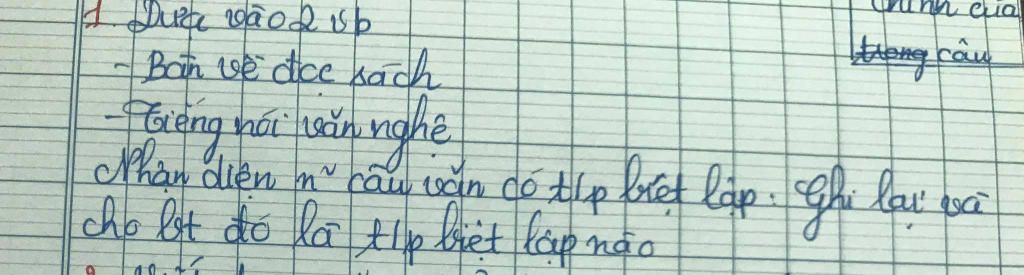 chính của
trong câu
1. Dựa vào 2 vb
- Bàn về đọc sách
- Tiếng nói văn nghệ
Nhận diện n~ câu văn có t/p biệt lập. Ghi lại và
cho bt đó là t/p biệt lập nào